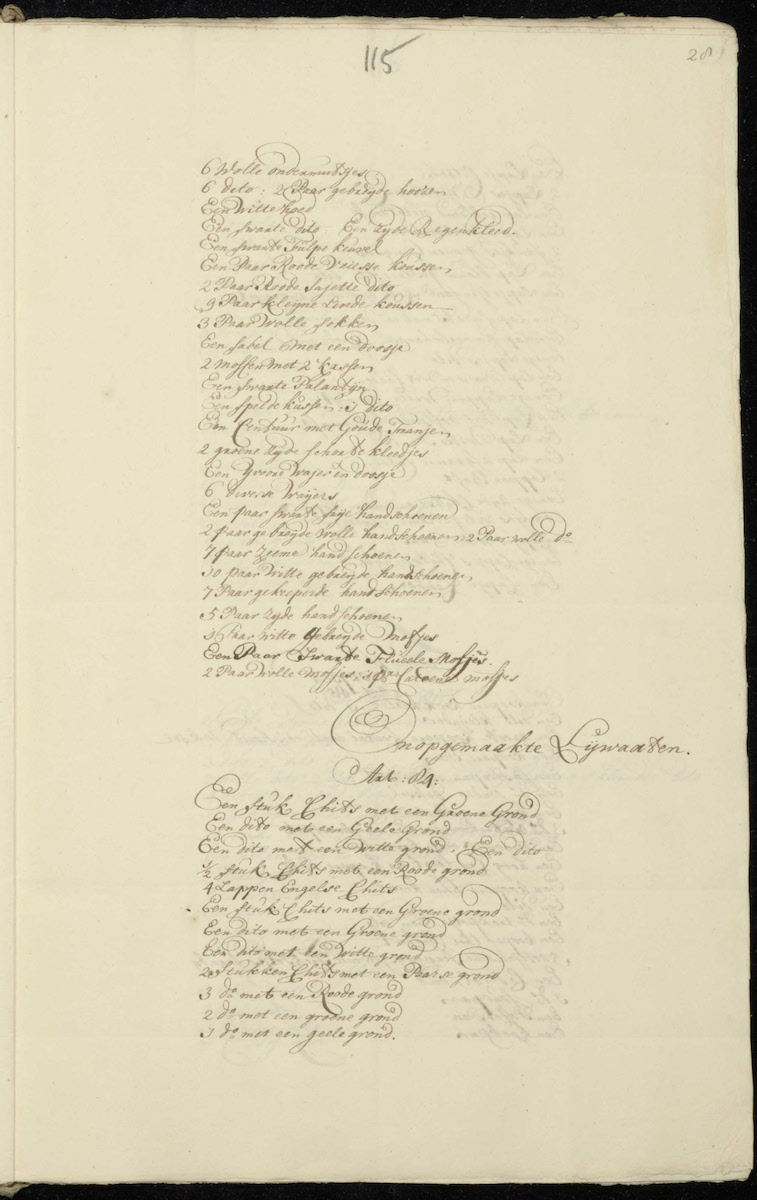 115
28
6 Wolle ondermutsjes
6 dito : 2 Paar gebreyde hosen
Een Witte hoed
Een swarte dito Een zyde Regenkleed.
Een swarte Tulpe keuvel
Een Paar Roode Vriesse koussen
2 Paar Roode sajette dito
3 Paar kleyne Linde koussen
3 Paar Wolle sokken
Een sabel met een doosje
2 Moffen met 2 kassen
Een swarte Palantyn
Een speldekussen : 1 dito
Een Centuur met Goude Franjen
2 groene zyde schortekleedjes
Een Yvoore Wajer in doosje
6 diverse Waijers
Een paar swarte saije handschoenen
2 paar gebreyde Wolle handschoenen : 2 Paar wolle do
7 paar Zeeme handschoenen
10 paar Witte gebreyde handschoenen
7 Paar gekeeperde handschoenen
5 Paar zyde handschoenen
1 Paar witte gebreyde Mofjes
Een Paar Swarte Flueele Mofjes.
2 Paar Wolle Mofjes : 1 pr Catoene mofjes
Onopgemaakte Lijwaaten.
Art : 84 :
Een stuk Chits met een Groene Grond
Een dito met een Geele Grond
Een dito met een Witte grond : Een dito
1/2 stuk Chits met een Roode grond
4 Lappen Engelse Chits
Een stuk Chits met een Groene grond
Een dito met een Groene grond
Een dito met een Witte grond
2 stukken Chits met een Paarse grond
3 do met een Roode grond
2 do met een groene grond
1 do met een geele grond.